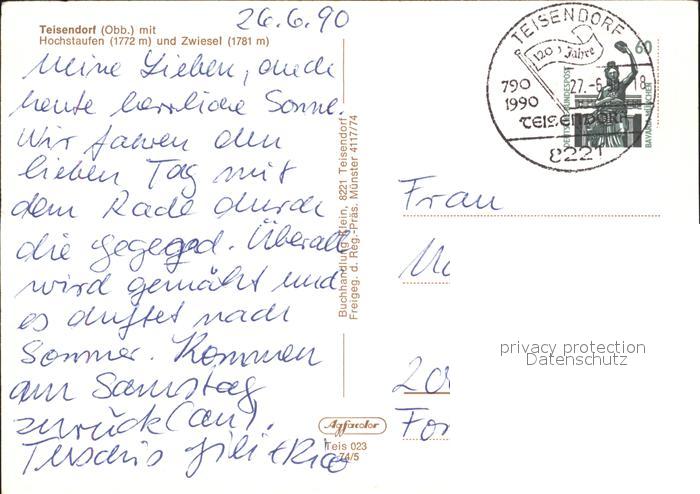 26.6.90
Teisendorf (Obb.) mit
Hochstaufen (1772 m) und Zwiesel (1781 m)
Meine Lieben, auch
heute herrliche Sonne.
Wir fahren den
lieben Tag mit
dem Rade durch
die Gegegd. Überall
wird gemäht und
es duftet nach
Sommer. Kommen
am Samstag
zurück (an).
Tuschüs Jili + Rico
Buchhandlung Klein, 8221 Teisendorf
Freigeg. d. Reg.-Präs. Münster 4117/74
Agfacolor
Teis 023
74/5
TEISENDORF
1200 Jahre
790
1990
27.-6.
18
TEISENDORF
8221
60
DEUTSCHE BUNDESPOST
BAVARIA MÜNCHEN
Frau
privacy protection
Datenschutz